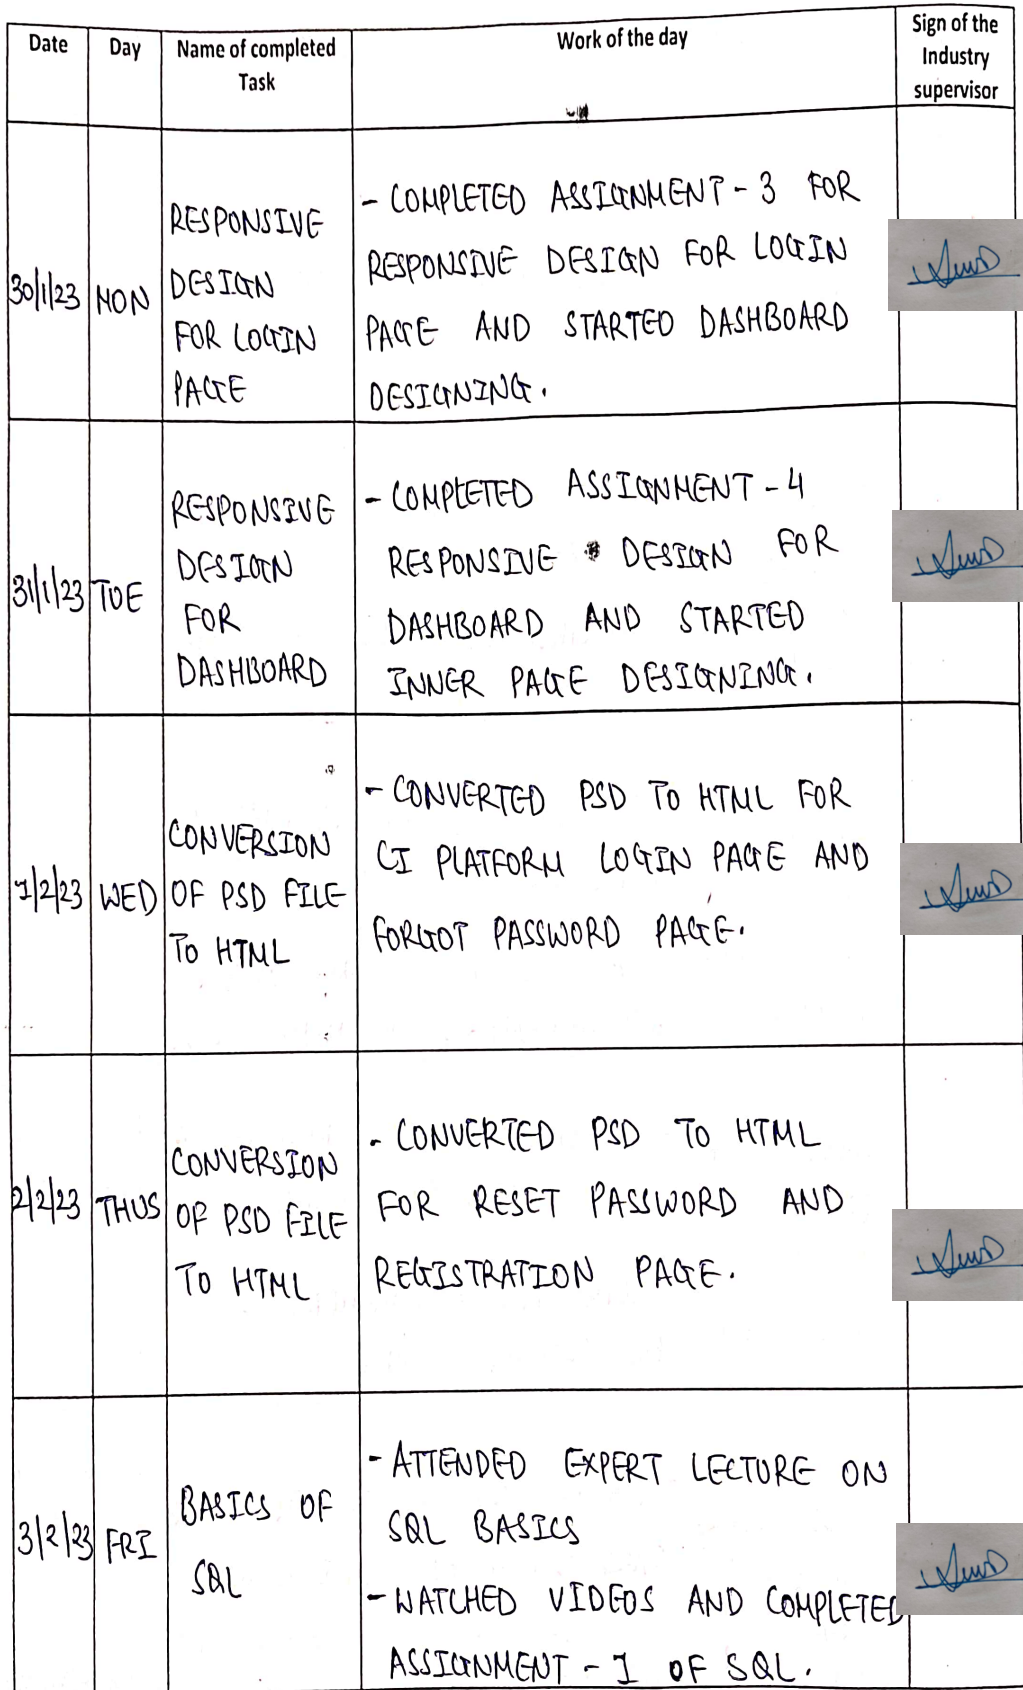 Date Day Name of completed Task Work of the day Sign of the Industry supervisor
30/1/23 MON
RESPONSIVE
DESIGN
FOR LOGIN
PAGE
- COMPLETED ASSIGNMENT - 3 FOR
RESPONSIVE DESIGN FOR LOGIN
PAGE AND STARTED DASHBOARD
DESIGNING.
31/1/23 TUE
RESPONSIVE
DESIGN
FOR
DASHBOARD
- COMPLETED ASSIGNMENT - 4
RESPONSIVE DESIGN FOR
DASHBOARD AND STARTED
INNER PAGE DESIGNING.
1/2/23 WED
CONVERSION
OF PSD FILE
TO HTML
- CONVERTED PSD TO HTML FOR
CI PLATFORM LOGIN PAGE AND
FORGOT PASSWORD PAGE.
2/2/23 THUS
CONVERSION
OF PSD FILE
TO HTML
- CONVERTED PSD TO HTML
FOR RESET PASSWORD AND
REGISTRATION PAGE.
3/2/23 FRI
BASICS OF
SQL
- ATTENDED EXPERT LECTURE ON
SQL BASICS
- WATCHED VIDEOS AND COMPLETED
ASSIGNMENT - 1 OF SQL.